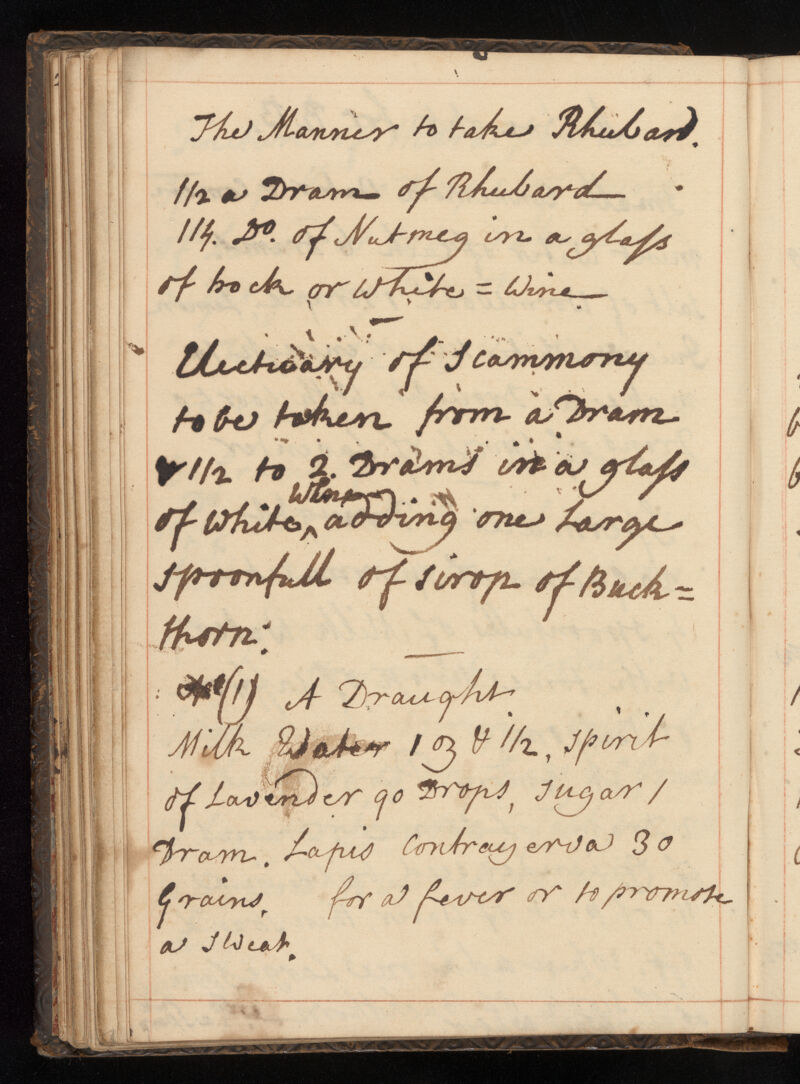 The Manner to take Rhubard.
1/2 a Dram of Rhubard
1/4. Do. of Nutmeg in a glass
of hock or White = Wine
Electuary of Scammony
to be taken from a Dram
& 1/2 to 2. Drams in a glass
of White Wine adding one Large
spoonfull of sirop of Buck=
thorn.
(1) A Draught
Milk Water 1 oz & 1/2, spirit
of Lavender 90 Drops, sugar 1
Dram. Lapis Contrayerva 30
Grains. for a fever or to promote
a sweat.